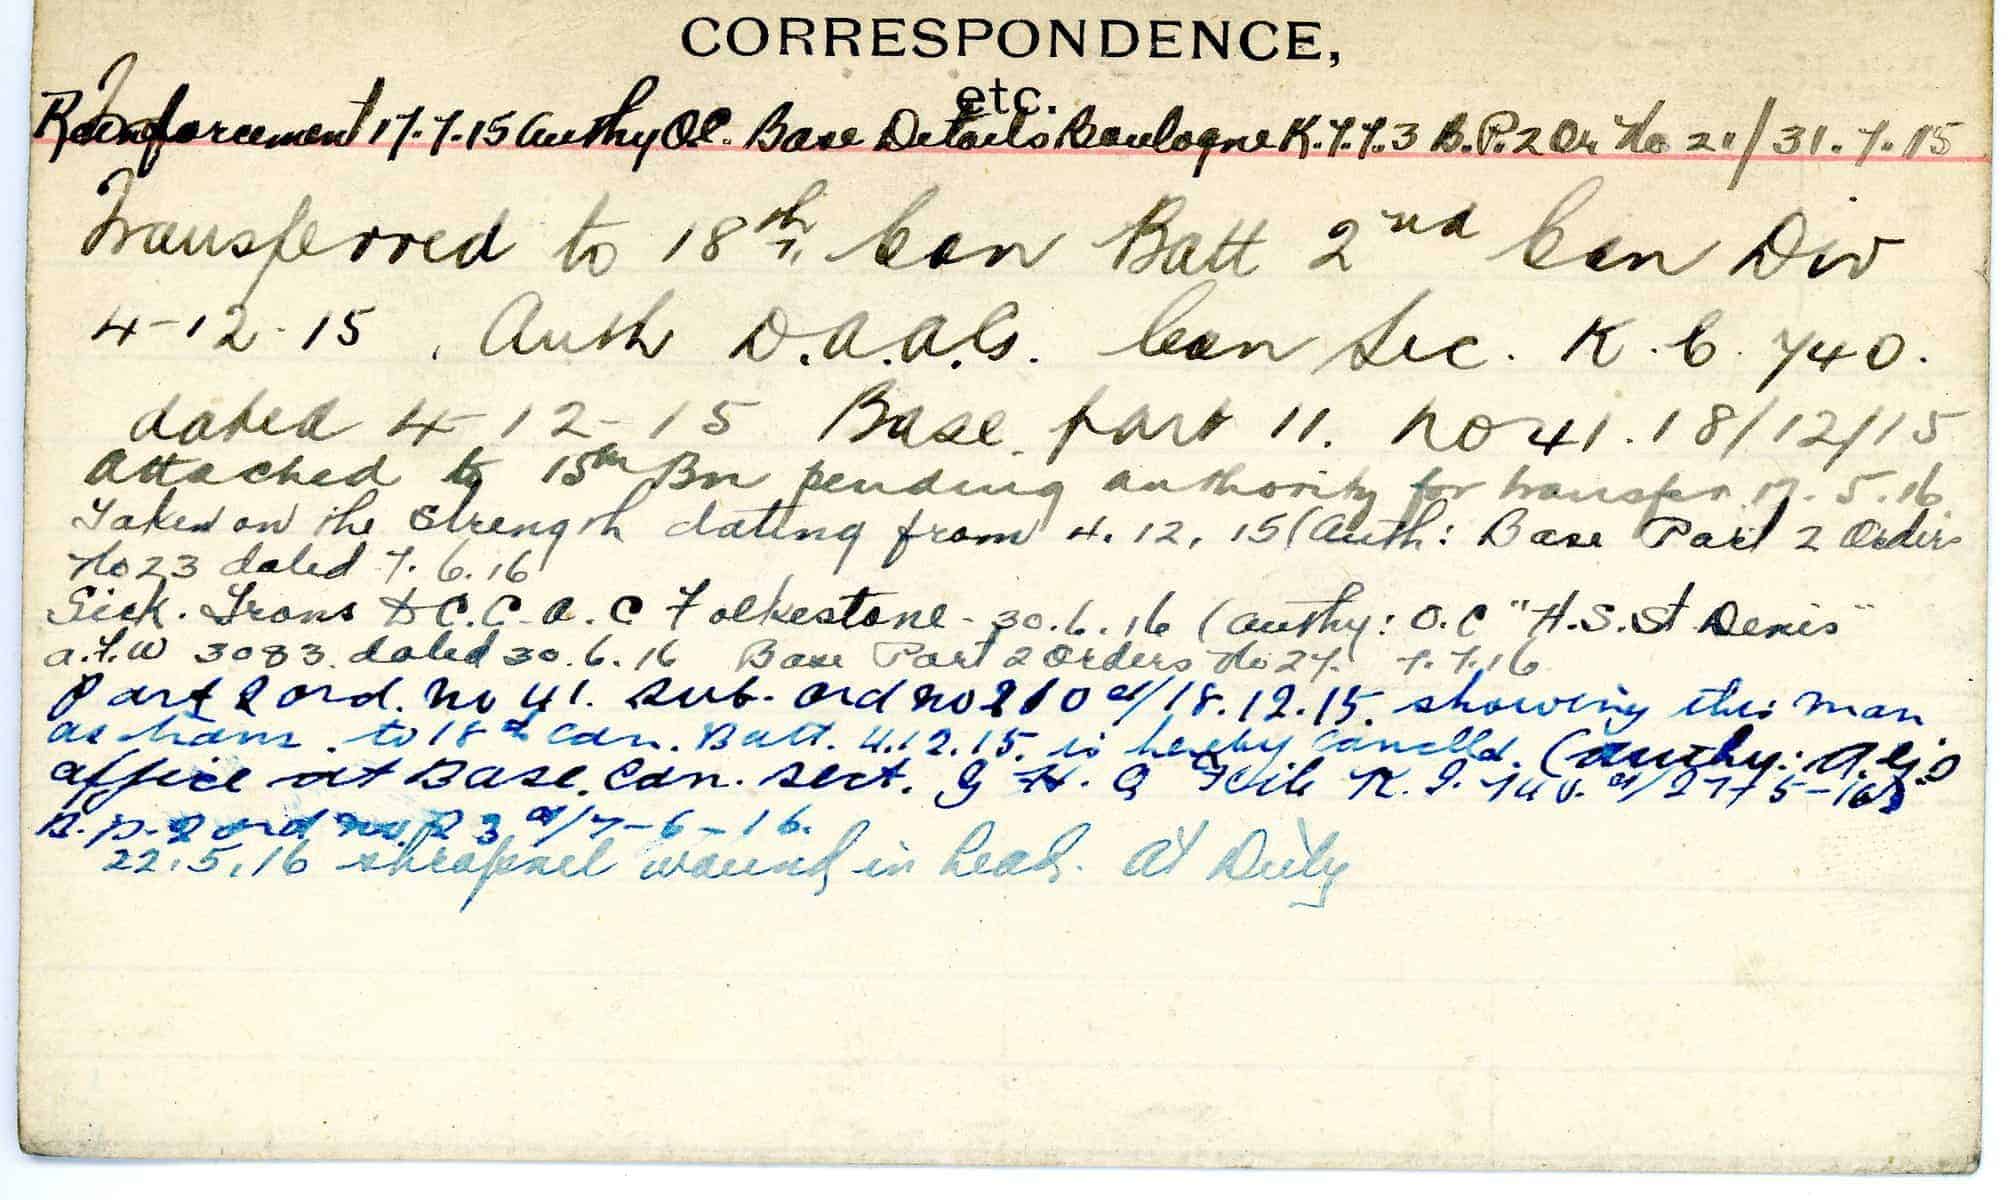 CORRESPONDENCE,
etc.
Reinforcement 17.7.15 Authy O.C. Base Details Boulogne K.7.7.3 B.P.2 Or No 21/31.7.15
Transferred to 18th Can Batt 2nd Can Div
4-12-15. Auth D.A.A.G. Can Sec. K.C. 740.
dated 4-12-15 Base part 11. No 41. 18/12/15
Attached to 15th Bn pending authority for transfer 17.5.16
Taken on the strength dating from 4.12.15 (Auth: Base Part 2 Orders
No 23 dated 7.6.16
Sick. Trans to C.C.A.C Folkestone - 30.6.16 (Authy: O.C "H.S. St Denis"
A.F.W 3083. dated 30.6.16 Base Part 2 Orders No 27. 7.7.16
Part 2 ord. No 41. Sub. ord No 210 d/18.12.15. showing this man
as trans. to 18th Can. Batt. 4.12.15. is hereby Cancelld. (Authy:
office at Base. Can. Sect. G H Q File K. 740. d/27-5-16)
B.P. 2 ord No. 23 d/7-6-16.
22.5.16 shrapnel wound in head. At Duty